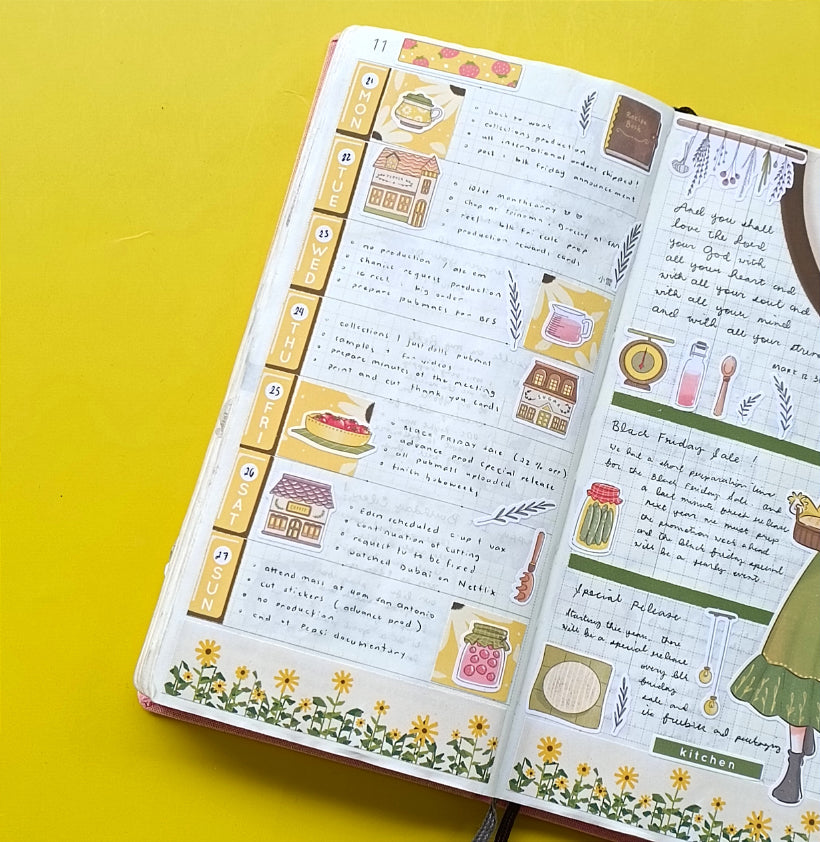 11
21
MON
back to work
collections production
all international orders shipped!
post: blk friday announcement
Recipe Book
22
TUE
101st monthsarry
shop at
reel: blk fri sale prep
production rewards cards
23
WED
no production
change request production
big order
prepare pubmats for BFS
小雪
24
THU
collections
samples + for videos
prepare minutes of the meeting
print and cut thank you cards
25
FRI
BLACK FRIDAY sale (22% off)
advance prod special release
all pubmats uploaded
finish
26
SAT
Eden scheduled
continuation of cutting
request to be fixed
watched Dubai on Netflix
27
SUN
attend mass at San Antonio
cut stickers (advance prod)
no production
end of Pepsi documentary
And you shall
love the Lord
your God with
all your heart and
with all your soul and
with all your mind
and with all your
MARK 12:
Black Friday Sale!
We had a short preparation time
for the Black Friday Sale and
a last minute special release
next year we must prep
the promotion week ahead
and the black friday special
will be a yearly event.
Special Release
Starting this year, there
will be a special release
every blk
friday
sale and
its freebies and packaging
kitchen